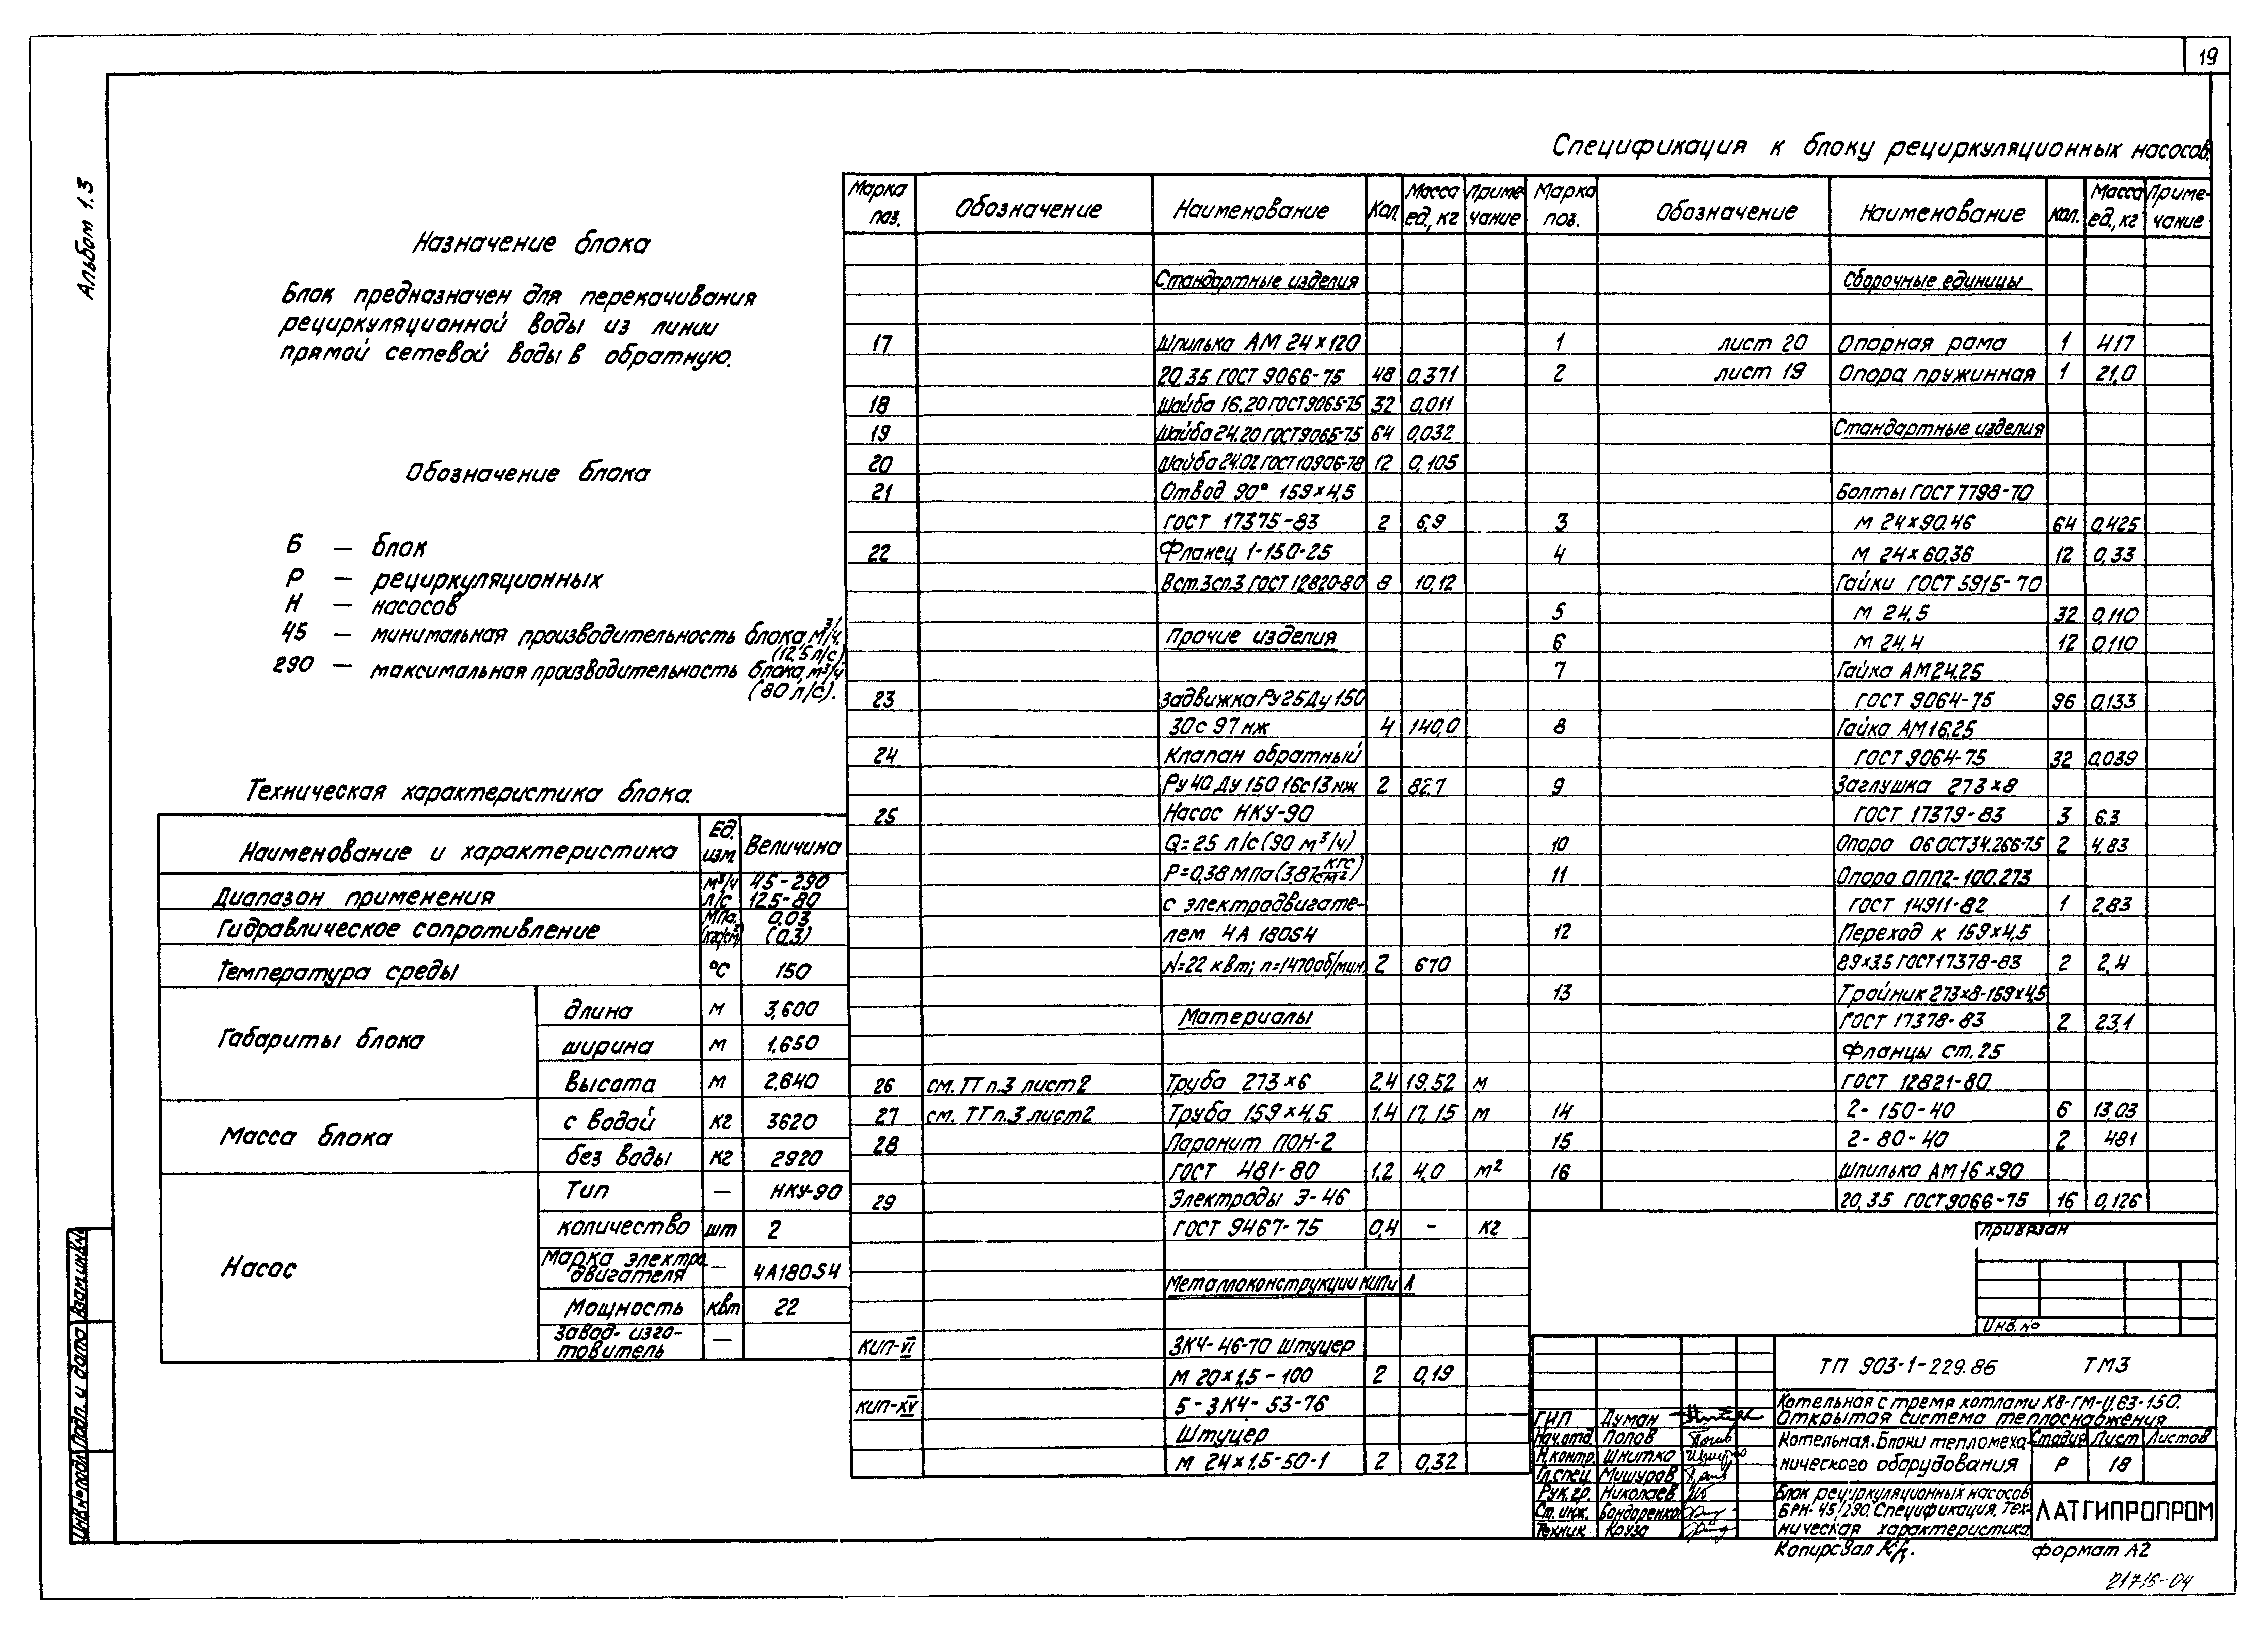 19
Альбом 1.3
Спецификация к блоку рециркуляционных насосов.
Назначение блока
Блок предназначен для перекачивания
рециркуляционной воды из линии
прямой сетевой воды в обратную.
Обозначение блока
Б — блок
Р — рециркуляционных
Н — насосов
45 — минимальная производительность блока, м³/ч.
(12,5 л/с)
290 — максимальная производительность блока, м³/ч
(80 л/с).
Техническая характеристика блока.
Наименование и характеристика Ед. изм. Величина
Диапазон применения м³/ч 45-290
л/с 12,5-80
Гидравлическое сопротивление МПа 0,03
(кгс/см²) (0,3)
Температура среды °С 150
Габариты блока длина м 3,600
ширина м 1,650
высота м 2,640
Масса блока с водой кг 3620
без воды кг 2920
Насос Тип — НКУ-90
количество шт 2
Марка электро
двигателя — 4А180S4
Мощность квт 22
Завод-изго-
товитель —
Марка поз. Обозначение Наименование Кол. Масса ед., кг Приме-чание
Стандартные изделия
17 Шпилька АМ 24×120
20.35 ГОСТ 9066-75 48 0,371
18 Шайба 16.20 ГОСТ 9065-75 32 0,011
19 Шайба 24.20 ГОСТ 9065-75 64 0,032
20 Шайба 24.02 ГОСТ 10906-78 12 0,105
21 Отвод 90° 159×4,5
ГОСТ 17375-83 2 6,9
22 Фланец 1-150-25
Вст.3сп.3 ГОСТ 12820-80 8 10,12
Прочие изделия
23 Задвижка Ру25Ду150
30с 97нж 4 140,0
24 Клапан обратный
Ру 40 Ду 150 16с13нж 2 82,7
25 Насос НКУ-90
Q=25 л/с (90 м³/ч)
Р=0,38 МПа (3,87 кгс/см²)
с электродвигате-
лем 4А 180S4
N=22 квт; n=1470об/мин. 2 670
Материалы
26 см. ТТ п.3 лист 2 Труба 273×6 2,4 19,52 м
27 см. ТТ п.3 лист 2 Труба 159×4,5 1,4 17,15 м
28 Паронит ПОН-2
ГОСТ 481-80 1,2 4,0 м²
29 Электроды Э-46
ГОСТ 9467-75 0,4 - кг
Металлоконструкции КИПиА
КИП-VI ЗК4-46-70 Штуцер
М 20×1,5-100 2 0,19
КИП-XV 5-ЗК4-53-76
Штуцер
М 24×1.5-50-1 2 0,32
Марка поз. Обозначение Наименование Кол. Масса ед., кг Приме-чание
Сборочные единицы
1 лист 20 Опорная рама 1 417
2 лист 19 Опора пружинная 1 21,0
Стандартные изделия
Болты ГОСТ 7798-70
3 М 24×90.46 64 0,425
4 М 24×60.36 12 0,33
Гайки ГОСТ 5915-70
5 М 24,5 32 0,110
6 М 24,4 12 0,110
7 Гайка АМ24.25
ГОСТ 9064-75 96 0,133
8 Гайка АМ16.25
ГОСТ 9064-75 32 0,039
9 Заглушка 273×8
ГОСТ 17379-83 3 6.3
10 Опора 06 ОСТ34.266-75 2 4,83
11 Опора ОПП2-100.273
ГОСТ 14911-82 1 2,83
12 Переход К 159×4,5
89×3,5 ГОСТ 17378-83 2 2,4
13 Тройник 273×8-159×4,5
ГОСТ 17378-83 2 23,1
Фланцы ст.25
ГОСТ 12821-80
14 2-150-40 6 13,03
15 2-80-40 2 481
16 Шпилька АМ16×90
20.35 ГОСТ 9066-75 16 0,126
Привязан
Инв.№
ТП 903-1-229.86 ТМ3
Котельная с тремя котлами КВ-ГМ-11,63-150.
Открытая система теплоснабжения
Котельная. Блоки тепломеха-
нического оборудования
Стадия Лист Листов
Р 18
Блок рециркуляционных насосов
БРН-45/290. Спецификация. Тех-
ническая характеристика.
ЛАТГИПРОПРОМ
ГИП Думан
Нач.отд. Попов
Н.контр. Шнитко
Гл.спец. Мишуров
Рук.гр. Николаев
Ст.инж. Бондаренко
Техник Кауза
Копировал
формат А2
21715-04
Инв.№подл. Подп. и дата Взам.инв.№